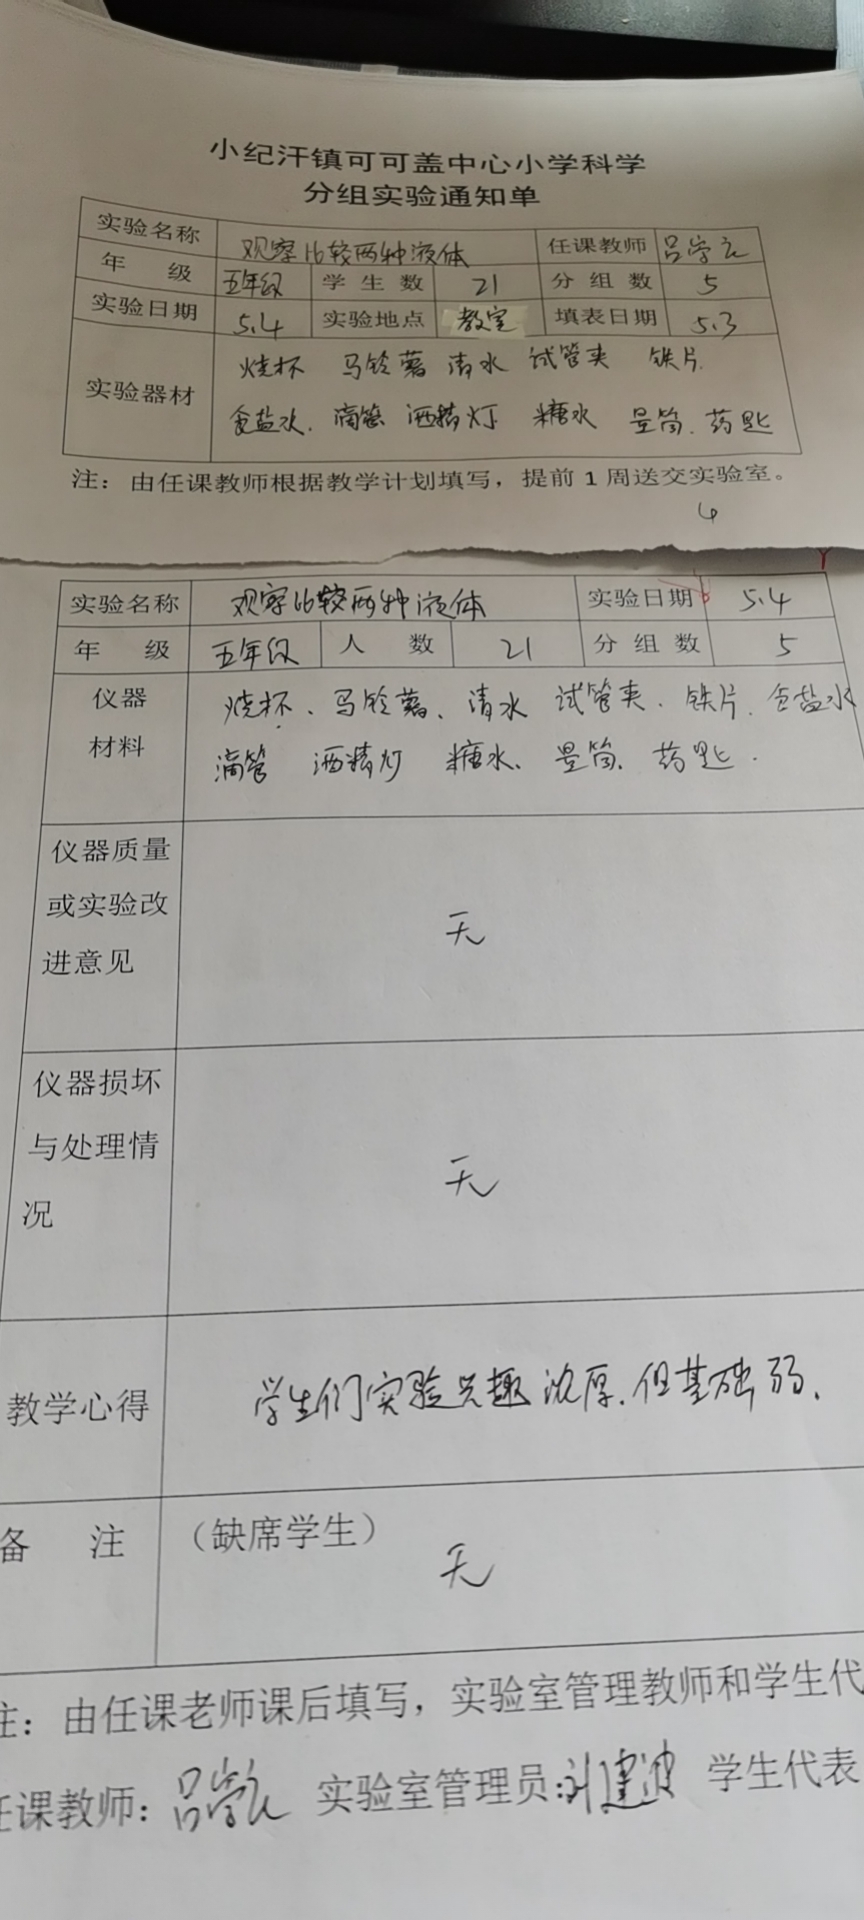 小纪汗镇可可盖中心小学科学
分组实验通知单
实验名称 观察比较两种液体 任课教师 吕学元
年 级 五年级 学生数 21 分组数 5
实验日期 5.4 实验地点 教室 填表日期 5.3
实验器材 烧杯 马铃薯 清水 试管夹 铁片.
食盐水. 滴管 洒精灯 糖水 量筒. 药匙
注：由任课教师根据教学计划填写，提前1周送交实验室。
4
实验名称 观察比较两种液体 实验日期 5.4
年 级 五年级 人 数 21 分组数 5
仪器 烧杯、马铃薯、清水 试管夹. 铁片. 食盐水
材料 滴管 洒精灯 糖水、量筒、药匙.
仪器质量
或实验改 无
进意见
仪器损坏
与处理情 无
况
教学心得 学生们实验兴趣浓厚.但基础弱.
备 注 （缺席学生）
无
注：由任课老师课后填写，实验室管理教师和学生代
任课教师：吕学元 实验室管理员：刘建波 学生代表